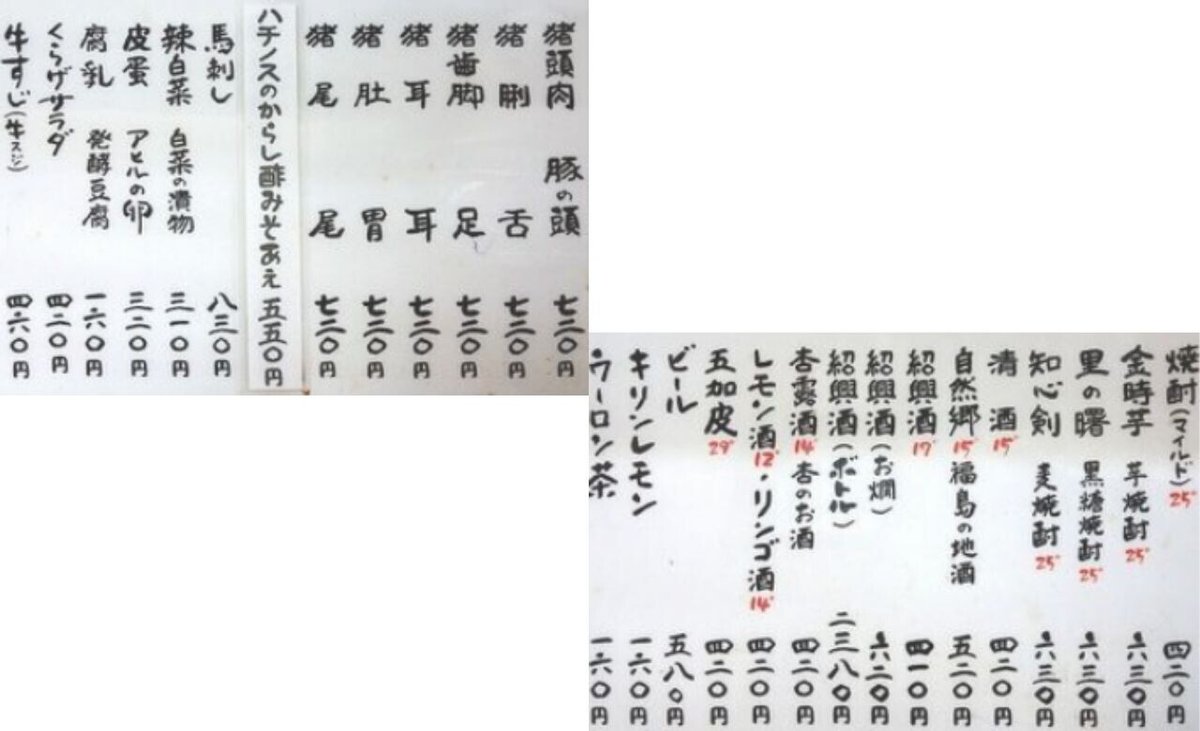 猪頭肉 豚の頭 七二〇円
猪脷 舌 七二〇円
猪歯脚 足 七二〇円
猪耳 耳 七二〇円
猪肚 胃 七二〇円
猪尾 尾 七二〇円
ハチノスのからし酢みそあえ 五五〇円
馬刺し 八三〇円
辣白菜 白菜の漬物 三一〇円
皮蛋 アヒルの卵 三二〇円
腐乳 発酵豆腐 一六〇円
くらげサラダ 四二〇円
牛すじ(牛スジ) 四六〇円
焼酎(マイルド) 25° 四二〇円
金時芋 芋焼酎 25° 六三〇円
里の曙 黒糖焼酎 25° 六三〇円
知心剣 麦焼酎 25° 六三〇円
清酒 15° 四二〇円
自然郷 15° 福島の地酒 五二〇円
紹興酒 17° 四一〇円
紹興酒(お燗) 六二〇円
紹興酒(ボトル) 二三八〇円
杏露酒 14° 杏のお酒 四二〇円
レモン酒 12°・リンゴ酒 14° 四二〇円
五加皮 29° 四二〇円
ビール 五八〇円
キリンレモン 一六〇円
ウーロン茶 一六〇円